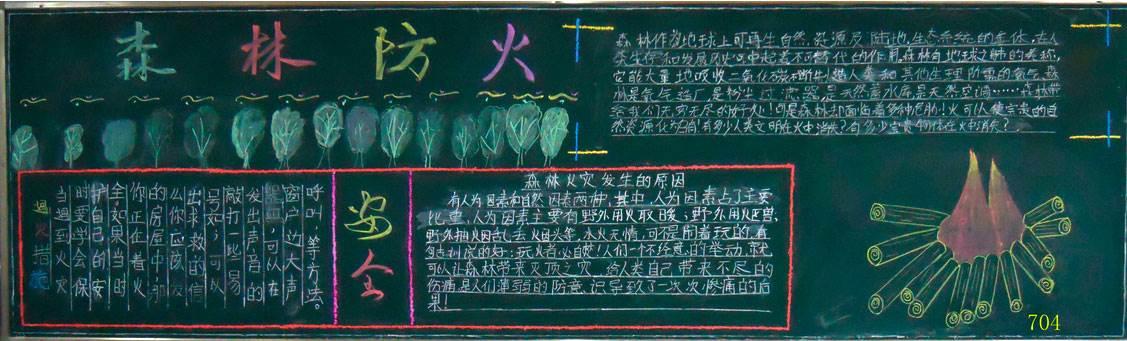 森 林 防 火
森林作为地球上可再生自然资源及陆地生态系统的主体,在人
类生存和发展历史中起着不可替代的作用,森林有地球之肺的美称,
它能大量地吸收二氧化碳
人类和其他生理所需的氧气,森
林是氧气造厂是粉尘过滤器,是天然蓄水库是天然空调……森林带
给我们无穷无尽的好处!可是森林却面临着多种危险!火可以使宝贵的自
然资源化为
有多少人类文明在火中消失?有多少宝贵物种在火中消失?
遇火措施
当遇到火灾
时要学会保
护自己的安
全,如果当时
你正在着火
的房屋中,那
么你应该发
出求救的信
号如:可以
敲打一些易
发出声音的
可以在
窗户边大声
呼叫,等方法。
安全
森林火灾发生的原因
有人为因素和自然因素两种,其中,人为因素占了主要
比重,人为因素主要有野外用火取暖;野外用火
野外抽烟乱丢火头等,水火无情,可不是闹着玩的,有
句
说的好:玩火者必自焚!人们一个不经意的举动,就
可以让森林带来灭顶之灾,给人类自己带来不尽的
伤痛是人们薄弱的防意识导致了一次次惨痛的后
果!
704